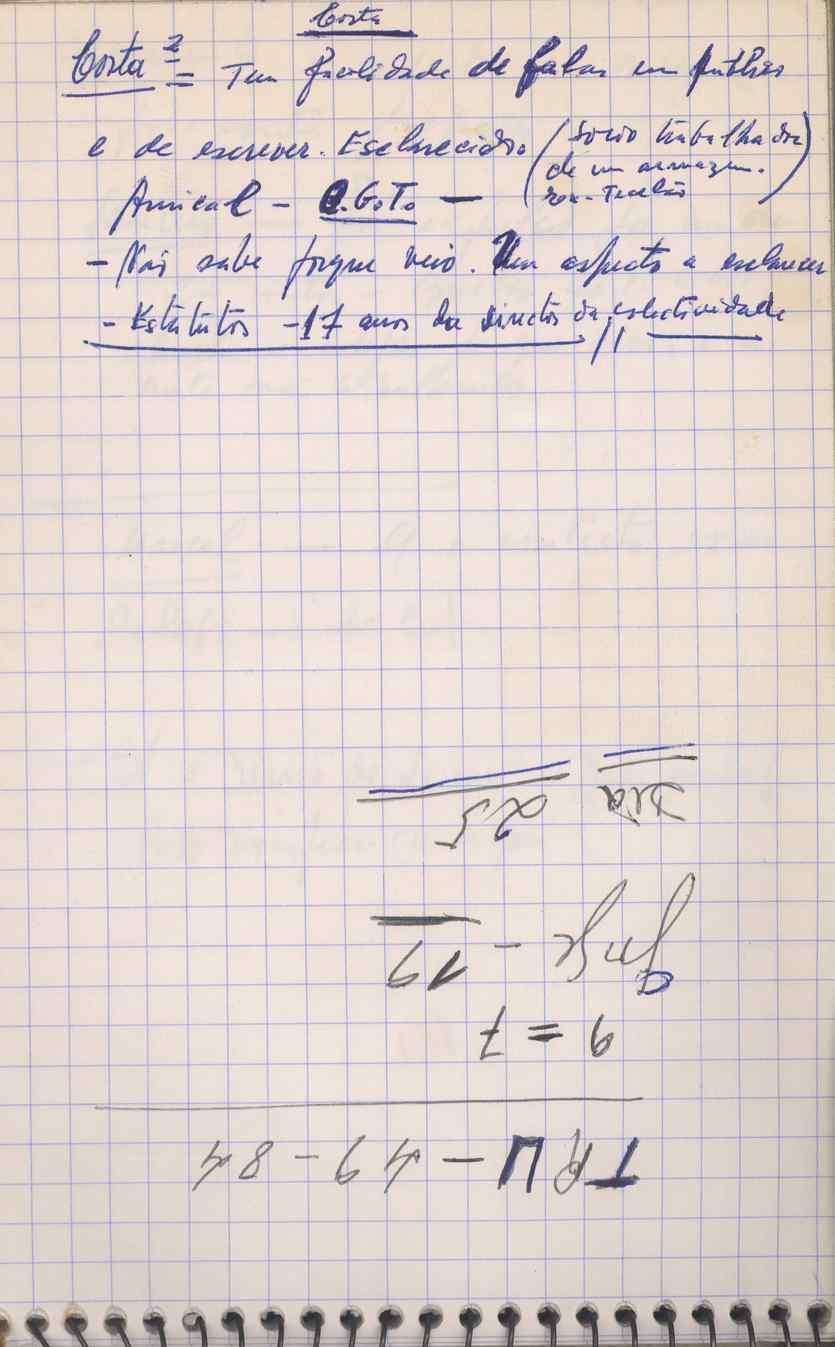 Costa
Costa 2 = Tem facilidade de falar em público
e de escrever. Esclarecido. (Sócio trabalhador
de um armazem.
Amical - C.G.T. -
- Não sabe porque veio. Um aspecto a esclarecer
- Estatutos - 17 anos da direcção da colectividade
TRU - 49 - 84
9 = 7
- 19
25
Dia